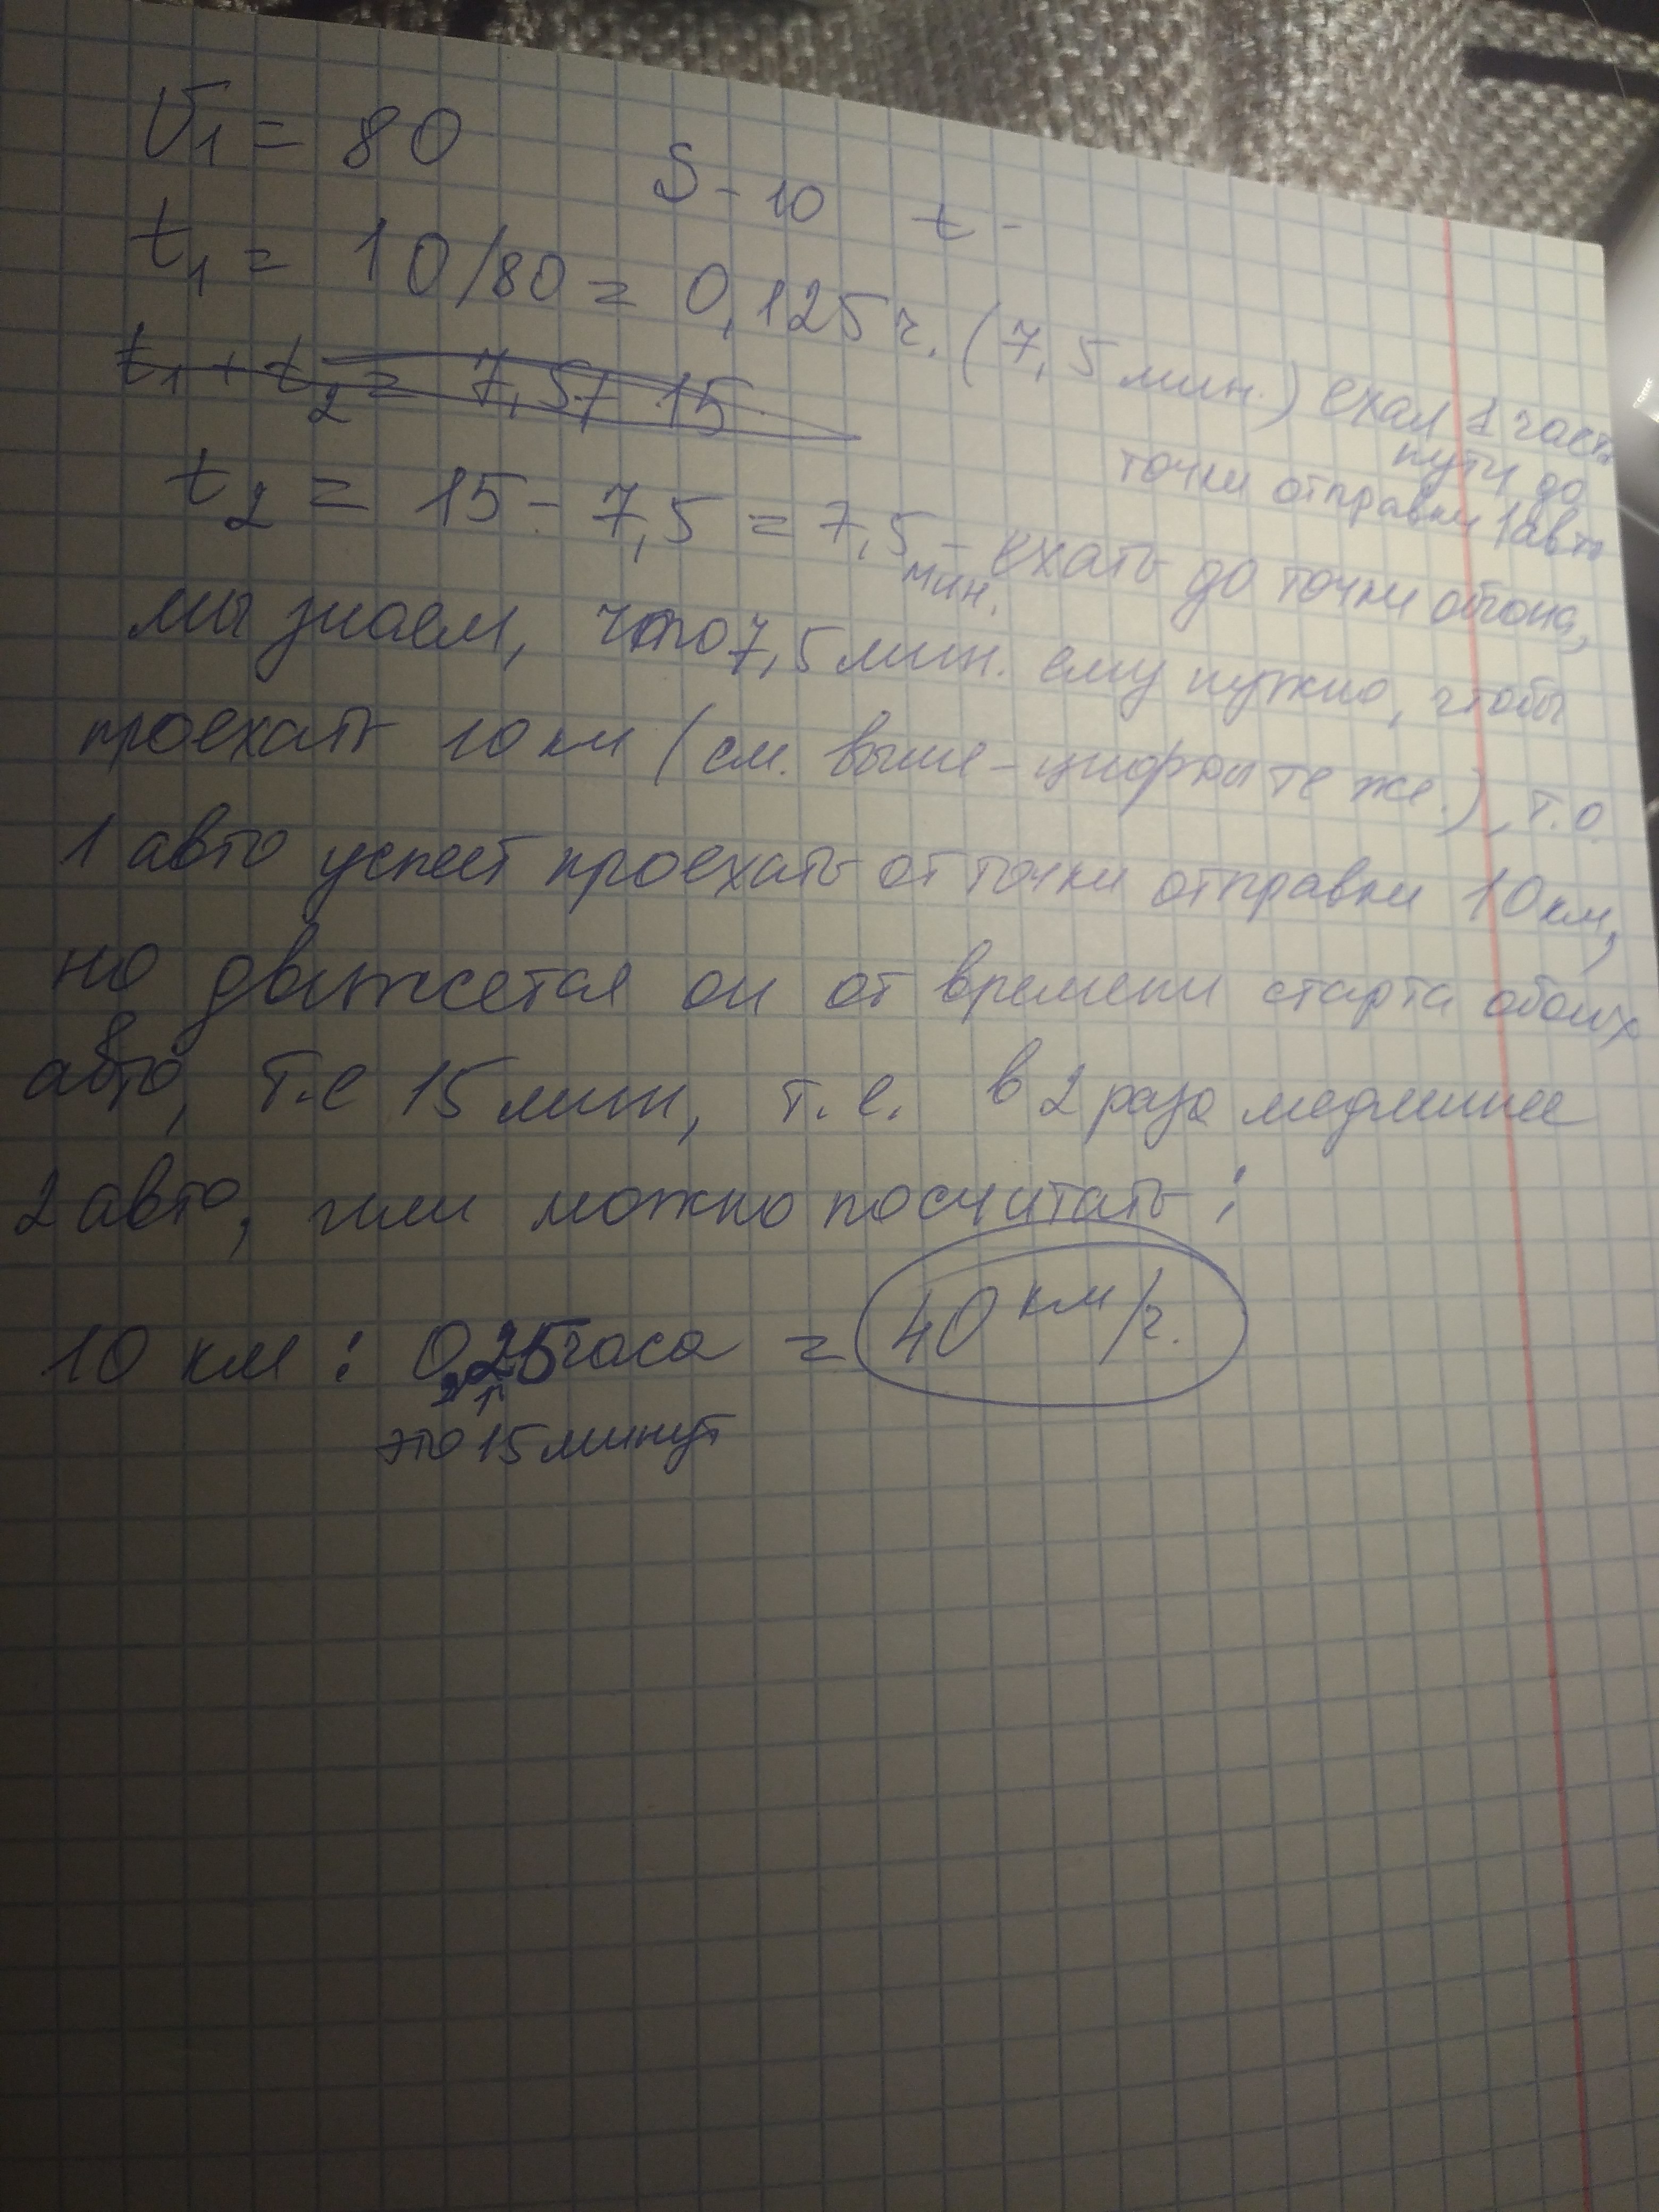 V1 = 80 S - 10 t -
t1 = 10/80 = 0,125 ч. (7,5 мин.) ехал 1 часть
пути до
точки отправки 1 авто
t1 + t2 = 7,5 + 15
t2 = 15 - 7,5 = 7,5 мин. - ехать до точки обгона,
мы знаем, что 7,5 мин. ему нужно, чтобы
проехать 10 км (см. выше - цифры те же.), т.о.
1 авто успеет проехать от точки отправки 10 км,
но движется он от времени старта обоих
авто, т.е 15 мин, т.е. в 2 раза медленнее
2 авто, или можно посчитать:
10 км : 0,25 часа = 40 км/ч.
это 15 минут